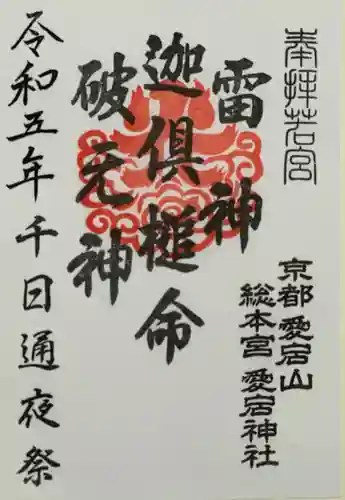 奉拝若宮
京都愛宕山
総本宮愛宕神社
雷神
迦倶槌命
破无神
令和五年千日通夜祭